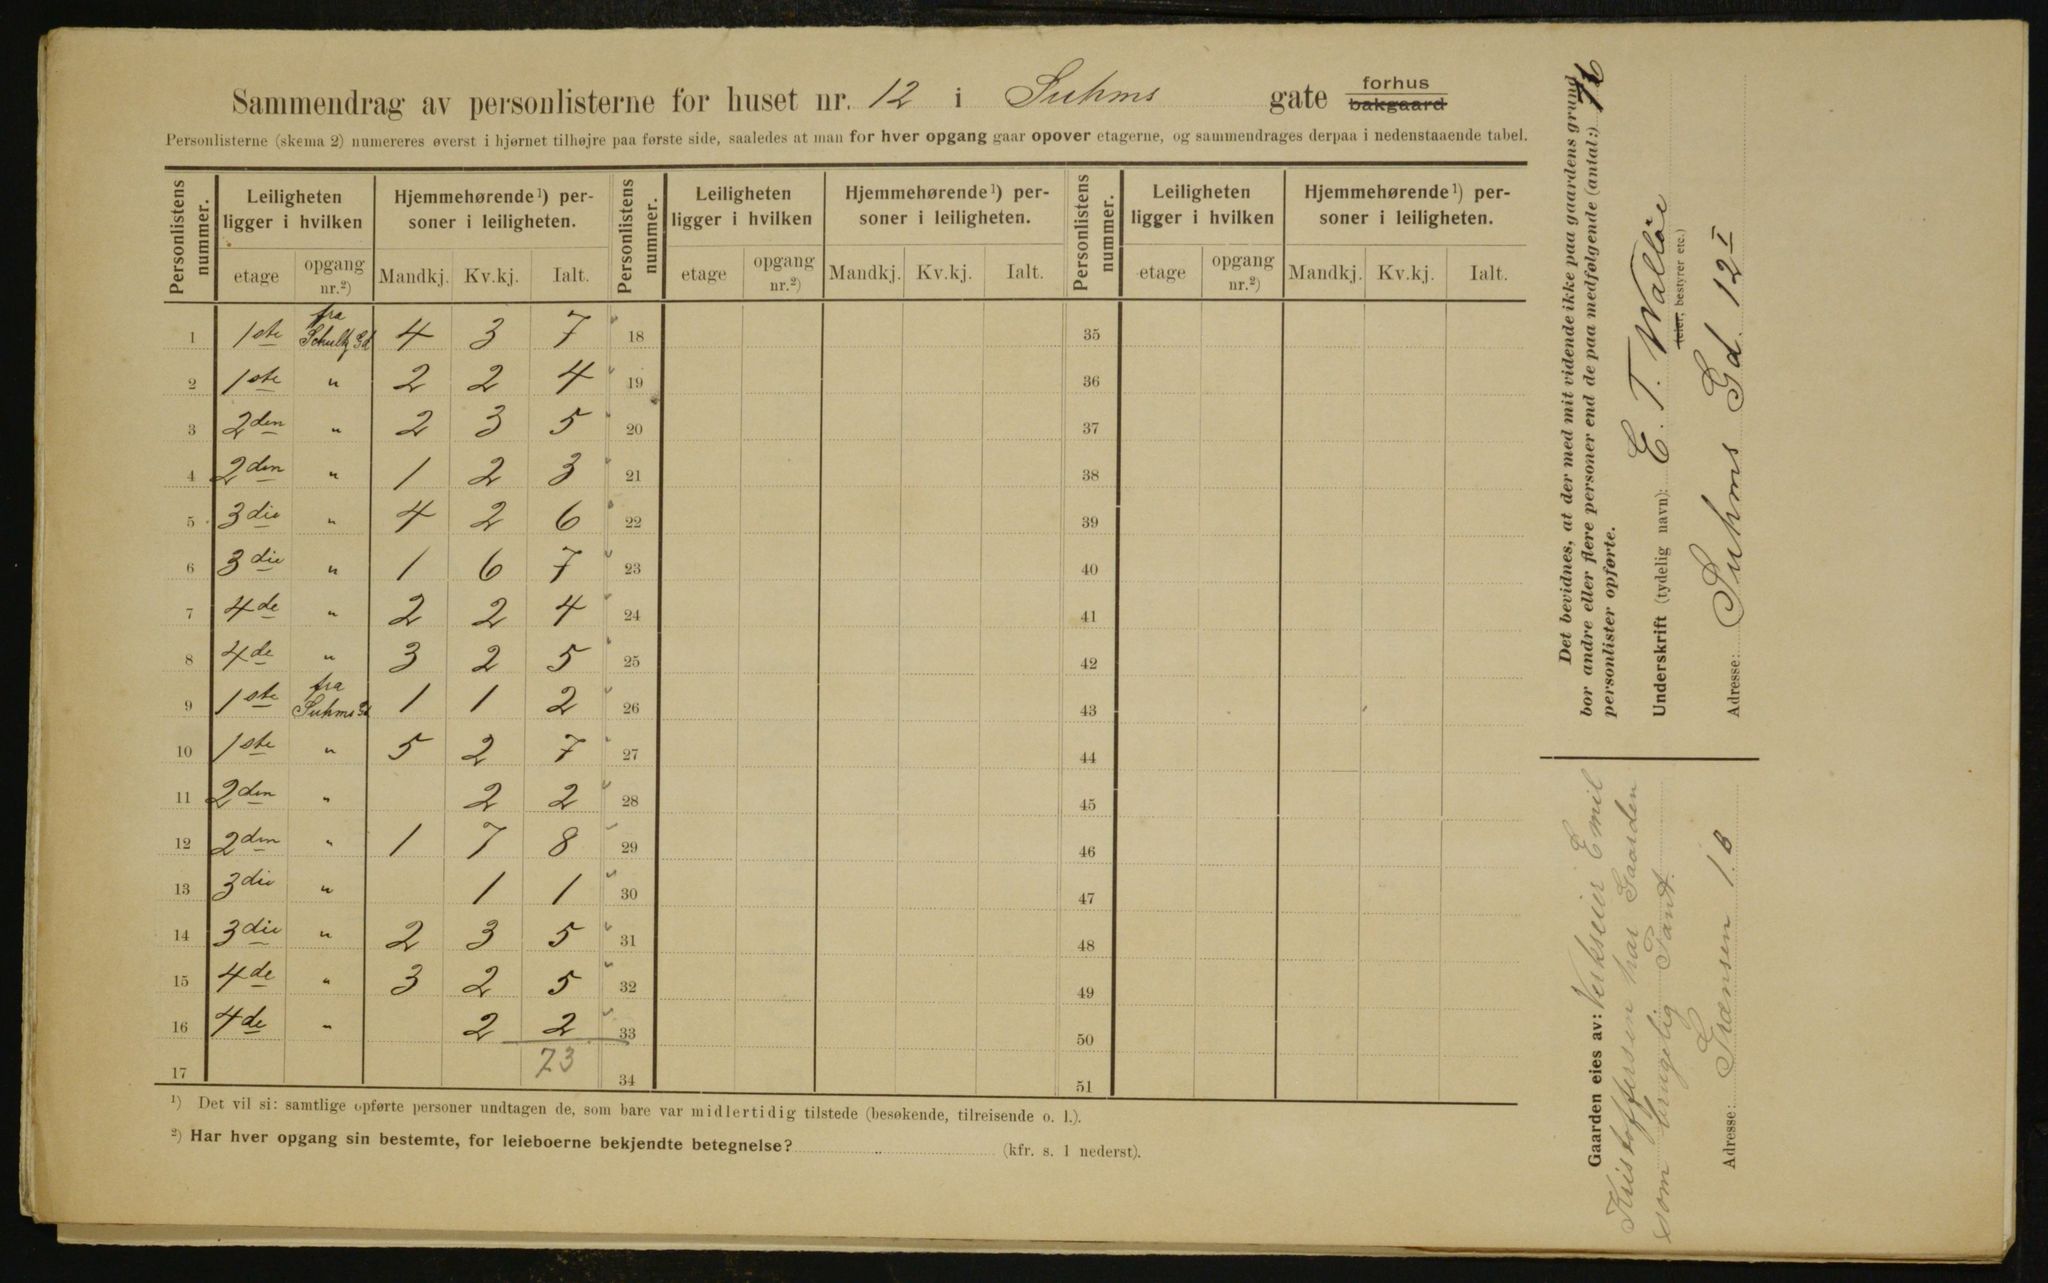 Sammendrag av personlisterne for huset nr. 12 i Suhms gate forhus bakgaard
Personlisterne (skema 2) numereres øverst i hjørnet tilhøjre paa første side, saaledes at man for hver opgang gaar opover etagerne, og sammendrages derpaa i nedenstaaende tabel.
Personlistens nummer. Leiligheten ligger i hvilken Hjemmehørende¹) personer i leiligheten. Personlistens nummer. Leiligheten ligger i hvilken Hjemmehørende¹) personer i leiligheten. Personlistens nummer. Leiligheten ligger i hvilken Hjemmehørende¹) personer i leiligheten.
etage opgang nr.²) Mandkj. Kv.kj. Ialt. etage opgang nr.²) Mandkj. Kv.kj. Ialt. etage opgang nr.²) Mandkj. Kv.kj. Ialt.
1 1ste fra Schultz Gd 4 3 7 18 35
2 1ste " 2 2 4 19 36
3 2den " 2 3 5 20 37
4 2den " 1 2 3 21 38
5 3die " 4 2 6 22 39
6 3die " 1 6 7 23 40
7 4de " 2 2 4 24 41
8 4de " 3 2 5 25 42
9 1ste fra Suhms Gd 1 1 2 26 43
10 1ste " 5 2 7 27 44
11 2den " 2 2 28 45
12 2den " 1 7 8 29 46
13 3die " 1 1 30 47
14 3die " 2 3 5 31 48
15 4de " 3 2 5 32 49
16 4de " 2 2 33 50
17 73 34 51
¹) Det vil si: samtlige opførte personer undtagen de, som bare var midlertidig tilstede (besøkende, tilreisende o. l.).
²) Har hver opgang sin bestemte, for leieboerne bekjendte betegnelse? (kfr. s. 1 nederst).
Det bevidnes, at der med mit vidende ikke paa gaardens grund
bor andre eller flere personer end de paa medfølgende (antal:) 16
personlister opførte.
Underskrift (tydelig navn): E. T. Walløe
(eier, bestyrer etc.)
Adresse: Suhms Gd. 12 I
Gaarden eies av: Verkseier Emil
Kristoffersen har Gaarden
som brugelig Pant.
Adresse: Grænsen 1.B